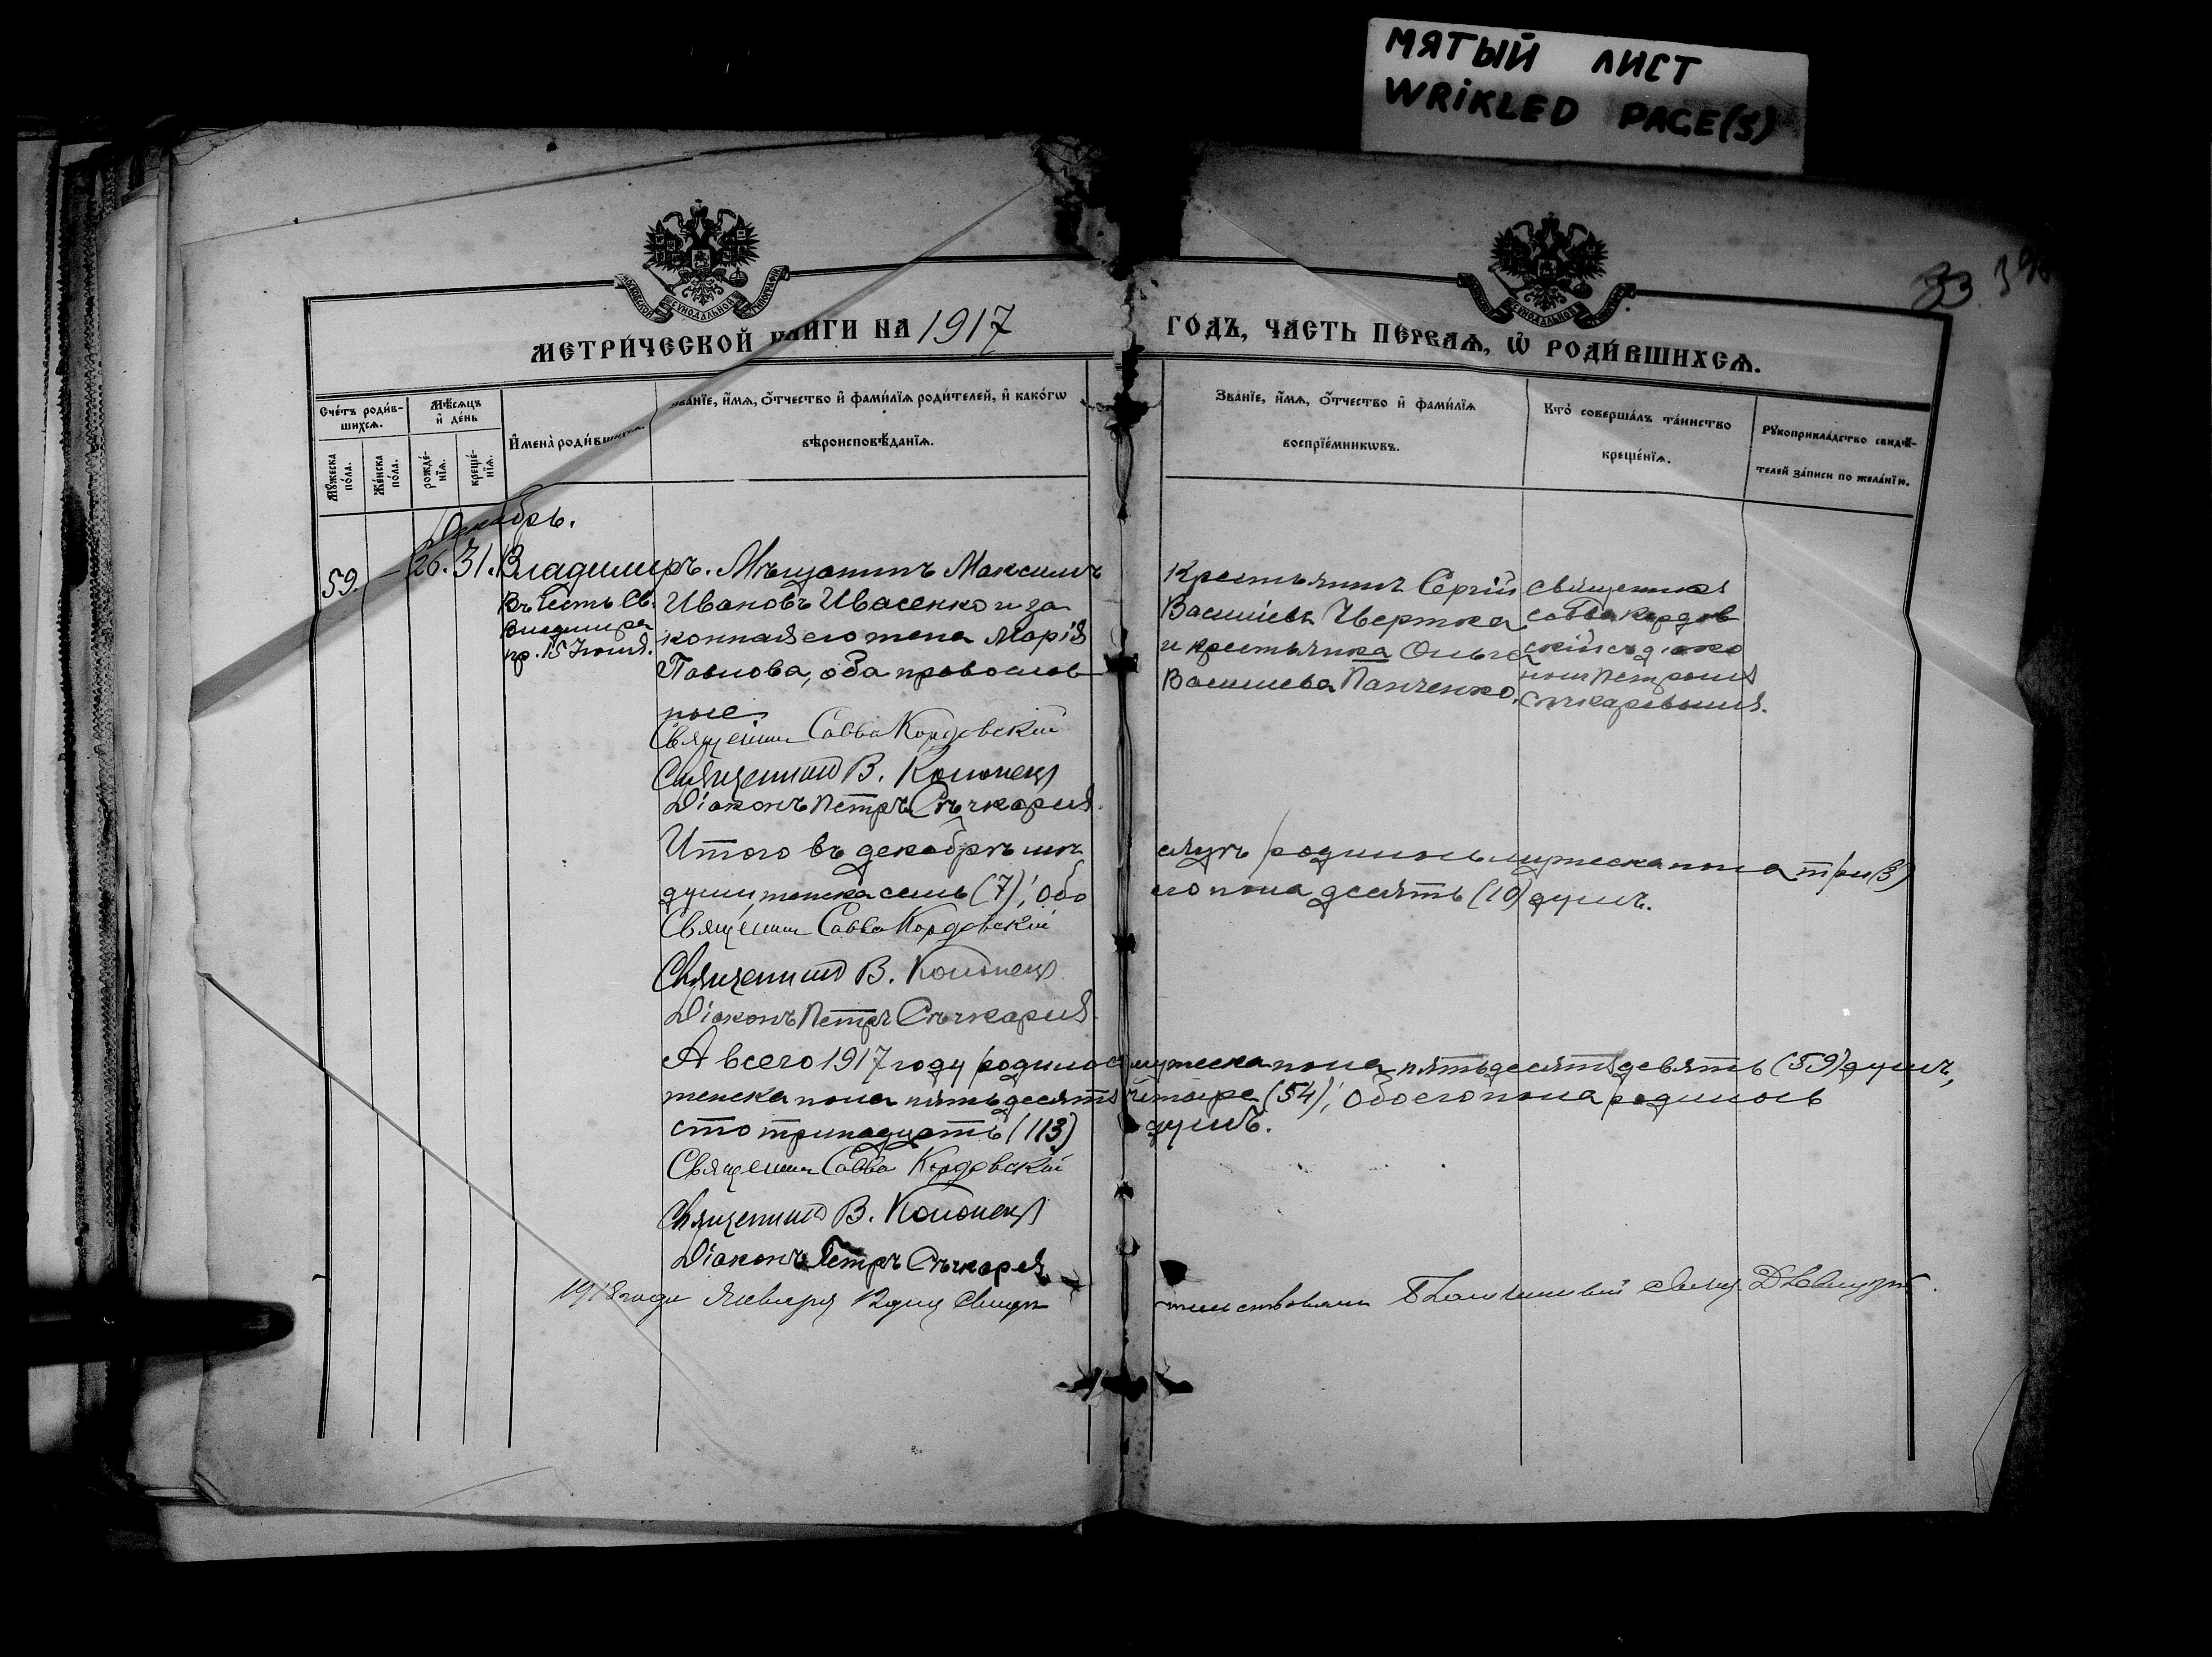 МЯТЫЙ ЛИСТ
WRiKLED PAGE(S)
33.
МЕТРИ́ЧЕСКОЙ КНИГИ НА 1917
ГОДЪ, ЧАСТЬ ПЕРВАѦ, Ѡ РОДИ́ВШИХСѦ.
Сче́тъ роди́в-
шихсѧ.
Мѣ́сѧцъ
и҆ де́нь
Мꙋ́жеска
по́ла.
Же́нска
по́ла.
рожде́-
нїѧ.
креще́-
нїѧ.
И҆мена̀ роди́вшихсѧ.
Зва́нїе, и҆́мѧ, ѻ҆́тчество и҆ фами́лїѧ роди́телей, и҆ како́гѡ
вѣроисповѣ́данїѧ.
Зва́нїе, и҆́мѧ, ѻ҆́тчество и҆ фами́лїѧ
воспрїе́мникѡвъ.
Кто̀ соверша́лъ та́инство
креще́нїѧ.
Рꙋкоприкла́дство свидѣ́-
телей за́писи по жела́нїю.
Декабрь.
59. – 26. 31. Владимиръ.
Въ честь Св.
Владимира
пр. 15 Іюля.
Мѣщанинъ Максимъ
Ивановъ Ивасенко и за
конная его жена Марія
Павлова, оба православ
ные
Крестьянинъ Сергій
Васильевъ Чвертка
и крестьянка Ольга
Васильева Панченко.
Священникъ
Савва Кордов
скій съ діако
номъ Петромъ
Сѣчкаревымъ.
Священник Савва Кордовскій
Священникъ В. Колонецъ
Діаконъ Петръ Сѣчкаревъ
Итого въ декабрѣ мѣ
сяцѣ родилось мужеска пола три (3)
души, женска семь (7); обо
его пола десять (10) душъ.
Священник Савва Кордовскій
Священникъ В. Колонецъ
Діаконъ Петръ Сѣчкаревъ
А всего 1917 году родилось мужеска пола пятьдесятъ девять (59) душъ,
женска пола пятьдесятъ четыре (54); обоего пола родилось
сто тринадцать (113) душъ.
Священник Савва Кордовскій
Священникъ В. Колонецъ
Діаконъ Петръ Сѣчкаревъ
1918 года Января дня Свидѣ
тельствовали